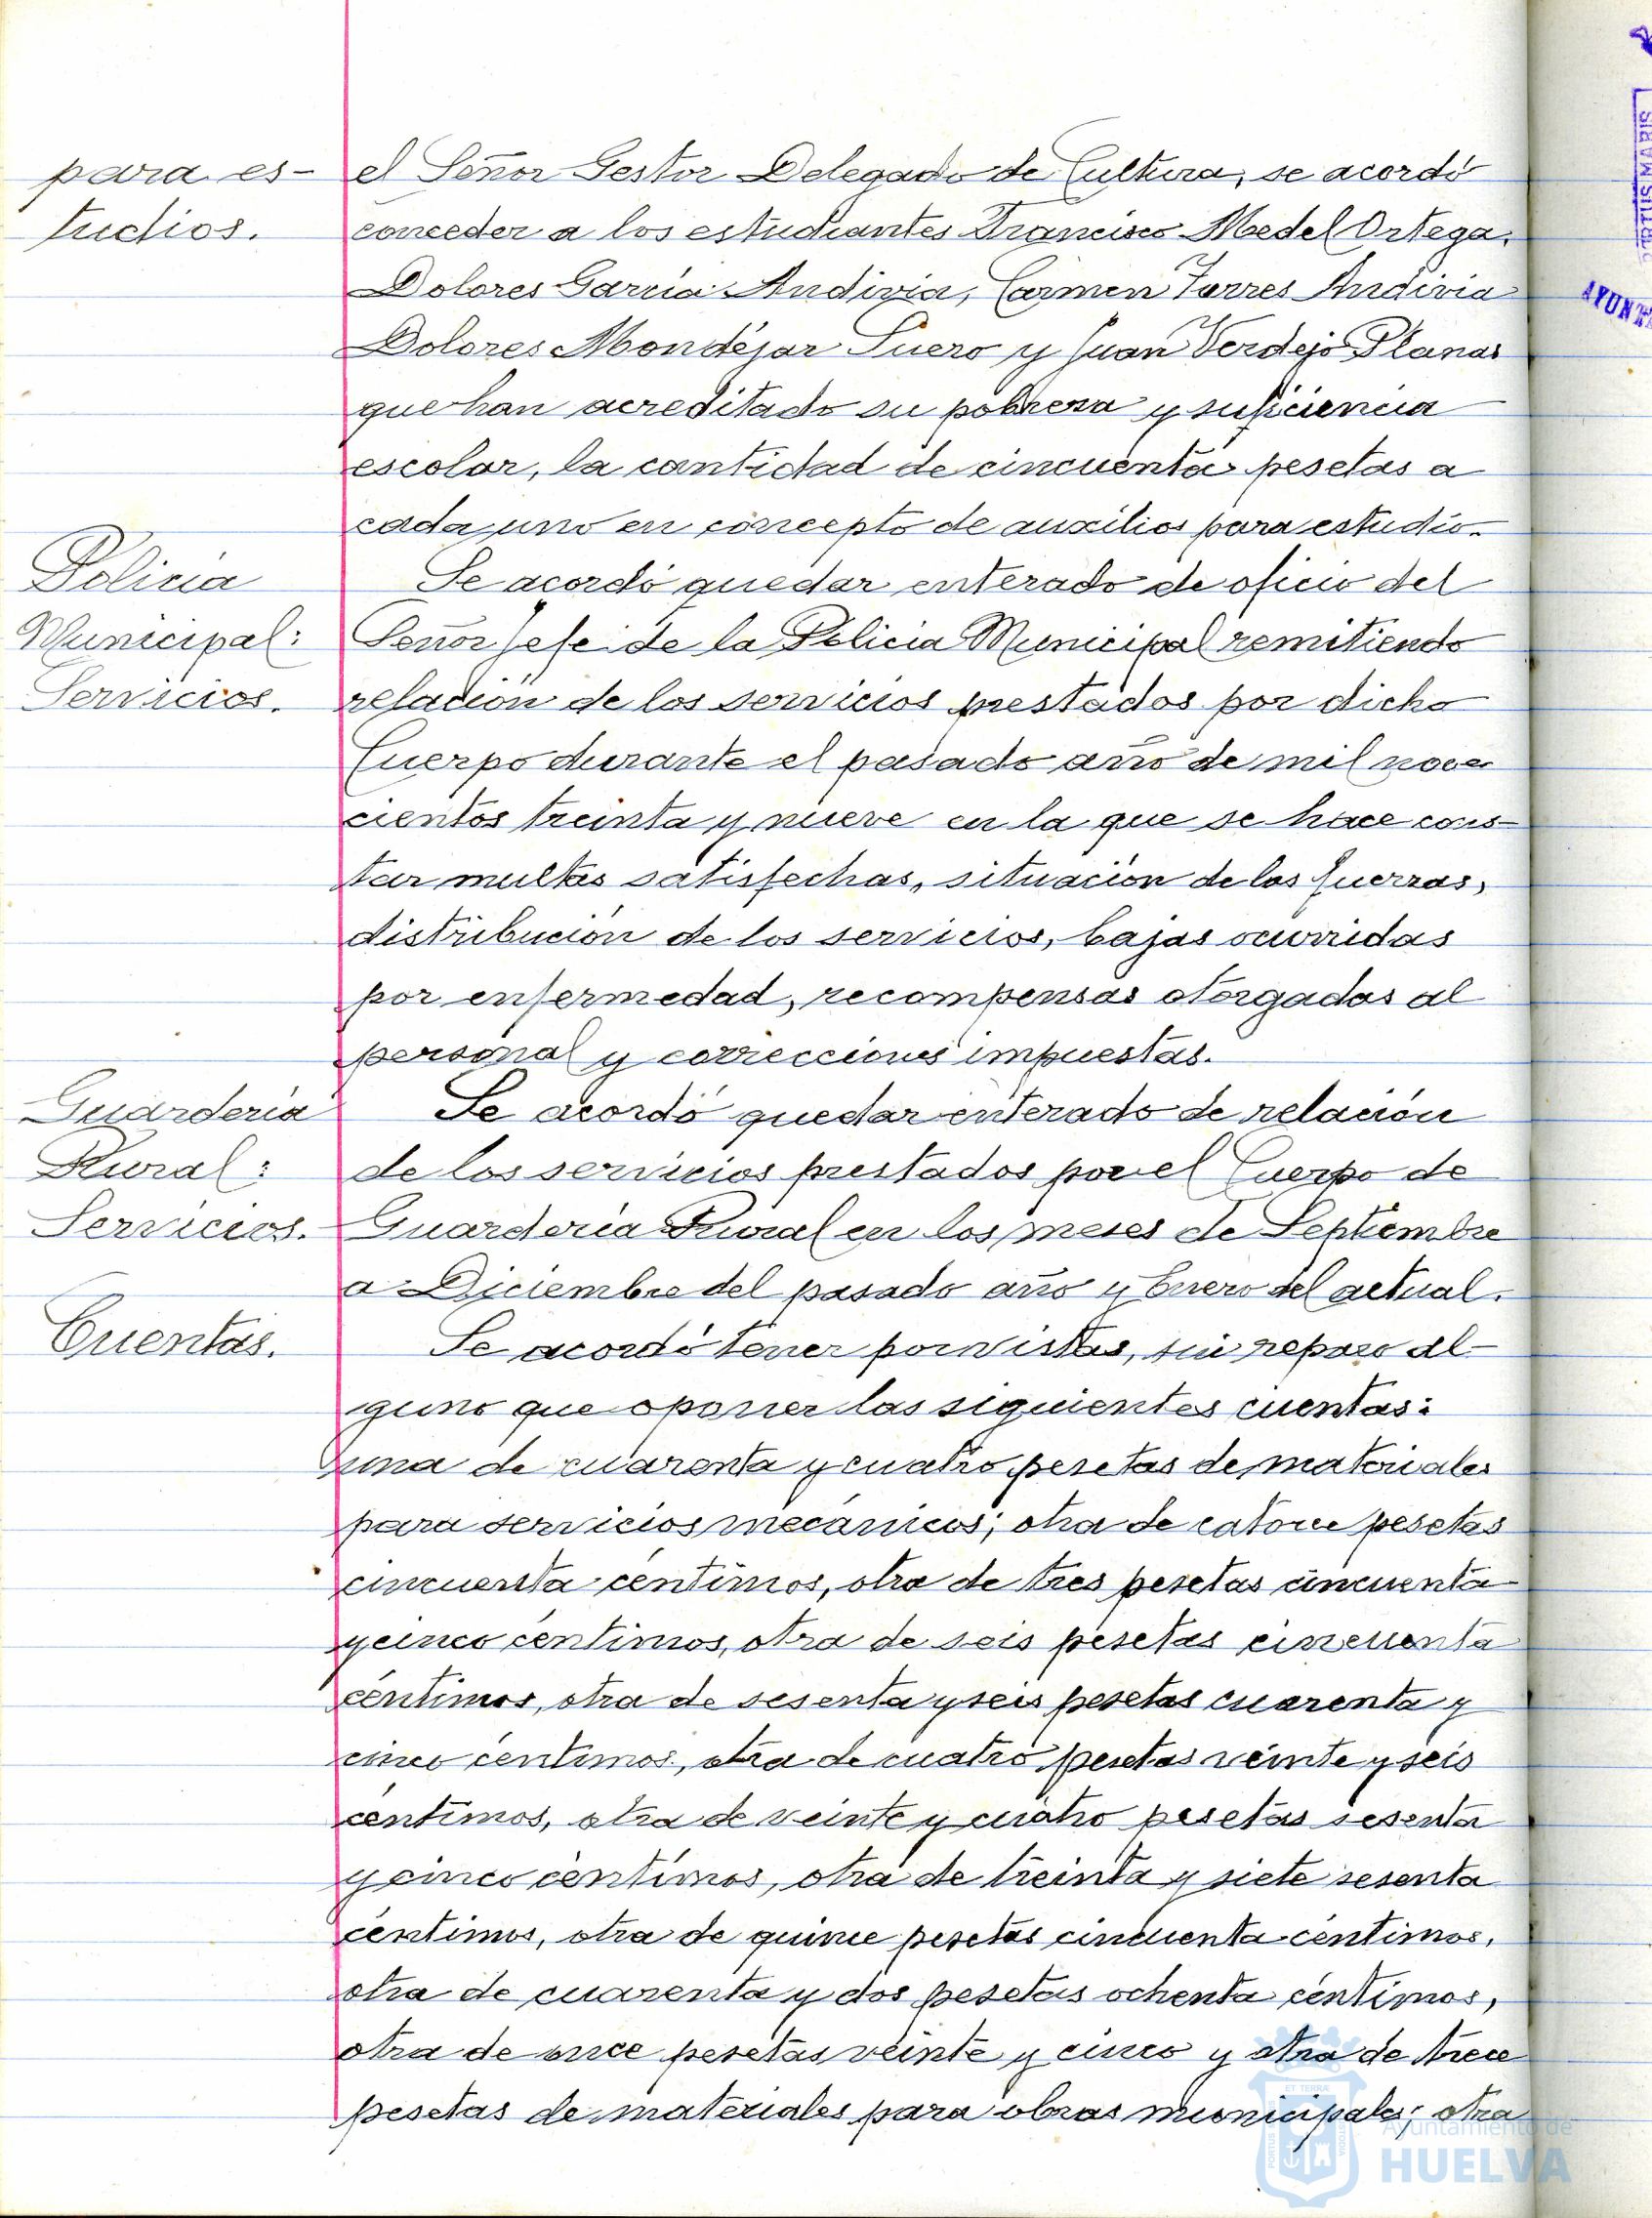 para es-
tudios.
el Señor Gestor Delegado de Cultura, se acordó
conceder a los estudiantes Francisco Medel Ortega,
Dolores García Andivia, Carmen Torres Andivia
Dolores Mondéjar Suero y Juan Verdejo Planas
que han acreditado su pobreza y suficiencia
escolar, la cantidad de cincuenta pesetas a
cada uno en concepto de auxilios para estudio.
Policia
Municipal:
Servicios.
Se acordó quedar enterado de oficio del
Señor Jefe de la Policia Municipal remitiendo
relación de los servicios prestados por dicho
Cuerpo durante el pasado año de mil nove-
cientos treinta y nueve en la que se hace cons-
tar multas satisfechas, situación de las fuerzas,
distribución de los servicios, bajas ocurridas
por enfermedad, recompensas otorgadas al
personal y correcciones impuestas.
Guardería
Rural:
Servicios.
Se acordó quedar enterado de relación
de los servicios prestados por el Cuerpo de
Guardería Rural en los meses de Septiembre
a Diciembre del pasado año y Enero del actual.
Cuentas.
Se acordó tener por vistas, sin reparo al-
guno que oponer las siguientes cuentas:
una de cuarenta y cuatro pesetas de materiales
para servicios mecánicos; otra de catorce pesetas
cincuenta céntimos, otra de tres pesetas cincuenta
y cinco céntimos, otra de seis pesetas cincuenta
céntimos, otra de sesenta y seis pesetas cuarenta y
cinco céntimos, otra de cuatro pesetas veinte y seis
céntimos, otra de veinte y cuatro pesetas sesenta
y cinco céntimos, otra de treinta y siete sesenta
céntimos, otra de quince pesetas cincuenta céntimos,
otra de cuarenta y dos pesetas ochenta céntimos,
otra de once pesetas veinte y cinco y otra de trece
pesetas de materiales para obras municipales; otra
Ayuntamiento de
HUELVA